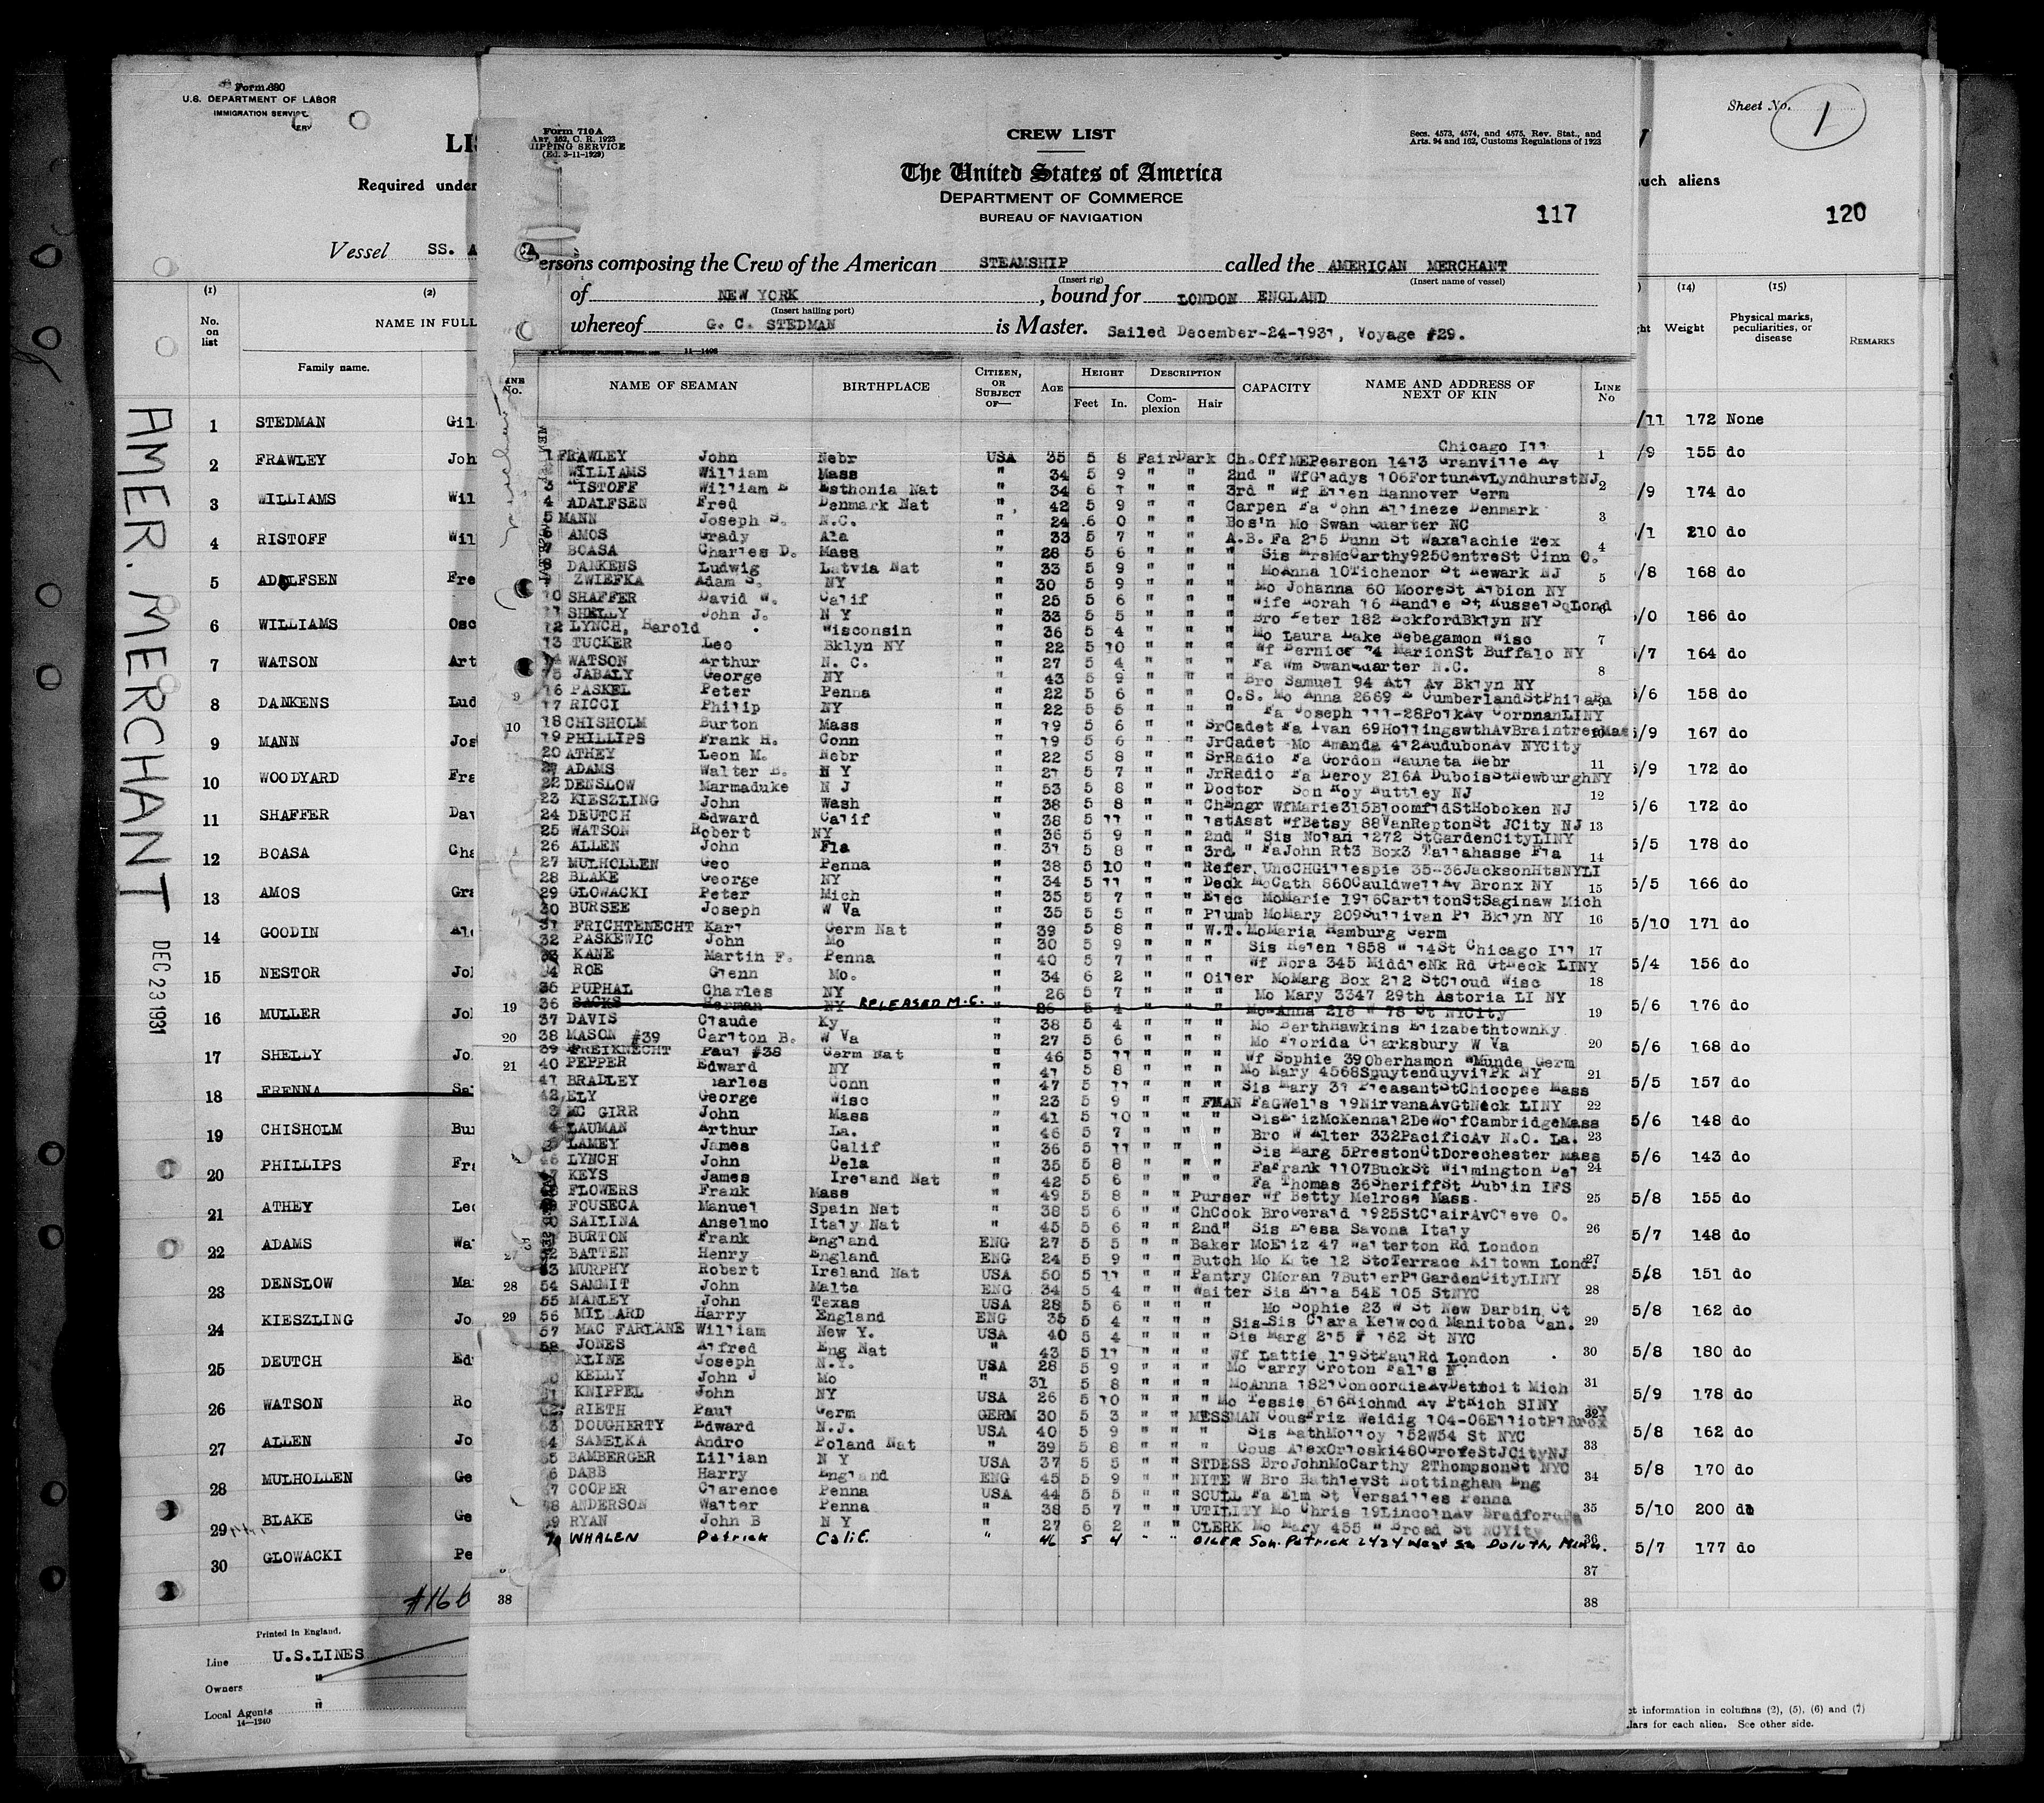 Form 680
U.S. DEPARTMENT OF LABOR
IMMIGRATION SERVICE
Required under
Vessel SS. A
(1) (2)
No. on list
NAME IN FULL
Family name.
1 STEDMAN Gil
2 FRAWLEY Joh
3 WILLIAMS Wil
4 RISTOFF Wil
5 ADOLFSEN Fre
6 WILLIAMS Osc
7 WATSON Art
8 DANKENS Lud
9 MANN Jos
10 WOODYARD Fra
11 SHAFFER Dav
12 BOASA Cha
13 AMOS Gra
14 GOODIN Alo
15 NESTOR Jo
16 MULLER Jo
17 SHELLY Jo
18 FRENNA Sa
19 CHISHOLM Bur
20 PHILLIPS Fra
21 ATHEY Leo
22 ADAMS Wa
23 DENSLOW Ma
24 KIESZLING Jo
25 DEUTCH Ed
26 WATSON Ro
27 ALLEN Jo
28 MULHOLLEN Ge
29 BLAKE Ge
30 GLOWACKI Pe
Printed in England.
Line U.S.LINES
Owners "
Local Agents "
14—1240
AMER. MERCHANT
DEC 23 1931
Form 710A
Art. 162, C. R. 1923
SHIPPING SERVICE
(Ed. 3-11-1929)
CREW LIST
Secs. 4573, 4574, and 4575, Rev. Stat., and
Arts. 94 and 162, Customs Regulations of 1923
The United States of America
DEPARTMENT OF COMMERCE
BUREAU OF NAVIGATION
117
ersons composing the Crew of the American STEAMSHIP called the AMERICAN MERCHANT
(Insert rig) (Insert name of vessel)
of NEW YORK, bound for LONDON ENGLAND
(Insert hailing port)
whereof G. C. STEDMAN is Master. Sailed December-24-1931, Voyage #29.
11—1406
LINE No. NAME OF SEAMAN BIRTHPLACE CITIZEN, OR SUBJECT OF— AGE HEIGHT Feet In. DESCRIPTION Complexion Hair CAPACITY NAME AND ADDRESS OF NEXT OF KIN LINE No
Chicago Ill
1 FRAWLEY John Nebr USA 35 5 8 Fair Dark Ch.Off MEPearson 1413 Granville Av
WILLIAMS William Mass " 34 5 9 " " 2nd " WfGladys 106FortunAvLyndhurstNJ
3 ISTOFF William E Esthonia Nat " 34 6 1 " " 3rd " Wf Ellen Hannover Germ
4 ADALFSEN Fred Denmark Nat " 42 5 9 " " Carpen Fa John Allineze Denmark
5 MANN Joseph S. N.C. " 24 6 0 " " Bos'n Mo Swan Quarter NC
6 AMOS Grady Ala " 33 5 7 " " A.B. Fa 215 Dunn St Waxalachie Tex
7 BOASA Charles D. Mass " 28 5 6 " " " Sis MrsMcCarthy925CentreSt Cinn O.
8 DANKENS Ludwig Latvia Nat " 33 5 9 " " " MoAnna 10Tichenor St Newark NJ
9 ZWIEFKA Adam S. NY " 30 5 9 " " " Mo Johanna 60 MooreSt Albion NY
10 SHAFFER David W. Calif " 25 5 6 " " " Wife Norah 16 Handle St RusselSqLond
11 SHELLY John J. N Y " 33 5 5 " " " Bro Peter 182 EckfordBklyn NY
12 LYNCH, Harold Wisconsin " 36 5 4 " " " Mo Laura Lake Nebagamon Wisc
13 TUCKER Leo Bklyn NY " 22 5 10 " " " Wf Bernice 74 MarionSt Buffalo NY
14 WATSON Arthur N. C. " 27 5 4 " " " Fa Wm SwanQuarter N.C.
15 JABALY George NY " 43 5 9 " " " Bro Samuel 94 Atl Av Bklyn NY
16 PASKEL Peter Penna " 22 5 6 " " O.S. Mo Anna 2669 E CumberlandStPhilaPa
17 RICCI Philip NY " 22 5 5 " " " Fa Joseph 111-28PolkAv CoronanLINY
18 CHISHOLM Burton Mass " 19 5 6 " " SrCadet Fa Ivan 69HollingswthAvBraintreeMas
19 PHILLIPS Frank H. Conn " 19 5 6 " " JrCadet Mo Amanda 412AudubonAv NYCity
20 ATHEY Leon M. Nebr " 22 5 8 " " SrRadio Fa Gordon Wauneta Nebr
21 ADAMS Walter E. N Y " 21 5 7 " " JrRadio Fa Leroy 216A DuboisStNewburghNY
22 DENSLOW Marmaduke N J " 53 5 8 " " Doctor Son Roy Nuttley NJ
23 KIESZLING John Wash " 38 5 8 " " ChEngr WfMarie315BloomfldStHoboken NJ
24 DEUTCH Edward Calif " 38 5 11 " " 1stAsst WfBetsy 88VanReptonSt JCity NJ
25 WATSON Robert NY " 36 5 9 " " 2nd " Sis Nolan 1272 StGardenCityLINY
26 ALLEN John Fla " 31 5 8 " " 3rd " FaJohn Rt3 Box3 Tallahasse Fla
27 MULHOLLEN Geo Penna " 38 5 10 " " Refer UncCHGillespie 35-36JacksonHtsNYLI
28 BLAKE George NY " 34 5 11 " " Deck MoCath 860CauldwellAv Bronx NY
29 GLOWACKI Peter Mich " 35 5 7 " " Elec MoMarie 1916CarltonStSaginaw Mich
30 BURSEE Joseph W Va " 35 5 5 " " Plumb MoMary 209Sullivan Pl Bklyn NY
31 FRICHTENECHT Karl Germ Nat " 39 5 8 " " W.T. MoMaria Hamburg Germ
32 PASKEWIC John Mo " 30 5 9 " " " Sis Helen 1858 W 14St Chicago Ill
33 KANE Martin F. Penna " 40 5 7 " " " Wf Nora 345 MiddleNk Rd GtNeck LINY
34 ROE Glenn Mo. " 34 6 2 " " Oiler MoMarg Box 212 StCloud Wisc
35 PUPHAL Charles NY " 26 5 7 " " " Mo Mary 3347 29th Astoria LI NY
36 SACKS Herman NY RELEASED M.C. " 26 5 4 " " " Mo-Anna 218 W 78 St NYCity
37 DAVIS Claude Ky " 38 5 4 " " " Mo BerthHawkins ElizabethtownKy
38 MASON #39 Carlton B. W Va " 27 5 6 " " " Mo Florida Clarksbury W Va
39 FREIKNECHT Paul #38 Germ Nat " 46 5 11 " " " Wf Sophie 39Oberhamon WMunde Germ
40 PEPPER Edward NY " 41 5 8 " " " Mo Mary 4568SpuytenduyvilPk NY
41 BRADLEY Charles Conn " 47 5 11 " " " Sis Mary 31 PleasantStChicopee Mass
42 ELY George Wisc " 23 5 9 " " FMAN FaGWells 19NirvanaAvGtNeck LINY
43 MC GIRR John Mass " 41 5 10 " " " SisElizMcKenna12DeWolfCambridgeMass
44 LAUMAN Arthur La. " 46 5 7 " " " Bro W Alter 332PacificAv N.O. La.
LAMEY James Calif " 36 5 11 " " " Sis Marg 5PrestonCtDorechester Mass
46 LYNCH John Dela " 35 5 8 " " " FaFrank 1107BuckSt Wilmington Del
47 KEYS James Ireland Nat " 42 5 6 " " " Fa Thomas 36SheriffSt Dublin IFS
48 FLOWERS Frank Mass " 49 5 8 " " Purser Wf Betty Melrose Mass.
49 FOUSECA Manuel Spain Nat " 38 5 6 " " ChCook BroGerald 1925StClairAvCleve O.
50 SAILINA Anselmo Italy Nat " 45 5 6 " " 2nd" Sis Elesa Savona Italy
51 BURTON Frank England ENG 27 5 5 " " Baker McEliz 47 Walterton Rd London
52 BATTEN Henry England ENG 24 5 9 " " Butch Mo Kate 12 StoTerrace Kiltown Lond
53 MURPHY Robert Ireland Nat USA 50 5 11 " " Pantry CMoran 7ButlerPlGardenCityLINY
54 SAMMIT John Malta ENG 34 5 4 " " Waiter Sis Ella 54E 105 StNYC
55 MANLEY John Texas USA 28 5 6 " " " Mo Sophie 23 W St New Darbin Ct
56 MILLARD Harry England ENG 35 5 4 " " " Sis-Sis Clara Kelwood Manitoba Can.
57 MAC FARLANE William New Y. USA 40 5 4 " " " Sis Marg 215 W 162 St NYC
58 JONES Alfred Eng Nat " 43 5 11 " " " Wf Lattie 119StPaulRd London
KLINE Joseph N.Y. USA 28 5 9 " " " Mo Carry Croton Falls N
KELLY John J Mo " 31 5 8 " " " MoAnna 1821ConcordiaAvDetroit Mich
61 KNIPPEL John NY USA 26 5 10 " " " Mo Tessie 616Richmd Av PtRich SINY
62 RIETH Paul Germ GERM 30 5 3 " " MESSMAN CousFriz Weidig 104-06ElliotPlBrox NY
63 DOUGHERTY Edward N.J. USA 40 5 9 " " " Sis KathMolloy 152W54 St NYC
64 SAMELKA Andro Poland Nat " 39 5 8 " " " Cous AlexOrloski480GroveStJCityNJ
65 BAMBERGER Lillian N Y USA 37 5 5 " " STDESS BroJohnMcCarthy 2ThompsonSt NYC
66 DABB Harry England ENG 45 5 9 " " NITE W Bro BathleySt Nottingham Eng
67 COOPER Clarence Penna USA 44 5 5 " " SCULL Fa Elm St Versailles Penna
68 ANDERSON Walter Penna " 38 5 7 " " UTILITY Mo Chris 19LincolnAv Bradford
69 RYAN John B N Y " 27 6 2 " " CLERK Mo Mary 455 W Broad St NCYity
70 WHALEN Patrick Calif. " 46 5 4 " " OILER Son. Patrick 2424 West St Duluth, Minn.
37
38 38
Sheet No. 1
such aliens
120
(14) (15)
Weight Physical marks, peculiarities, or disease REMARKS
/11 172 None
/9 155 do
/9 174 do
/1 210 do
/8 168 do
/0 186 do
/7 164 do
5/6 158 do
5/9 167 do
5/9 172 do
5/6 172 do
5/5 178 do
5/5 166 do
5/10 171 do
5/4 156 do
5/6 176 do
5/6 168 do
5/5 157 do
5/6 148 do
5/6 143 do
5/8 155 do
5/7 148 do
5/8 151 do
5/8 162 do
5/8 180 do
5/9 178 do
5/8 162 do
5/8 170 do
5/10 200 do
5/7 177 do
information in columns (2), (5), (6) and (7)
llars for each alien. See other side.